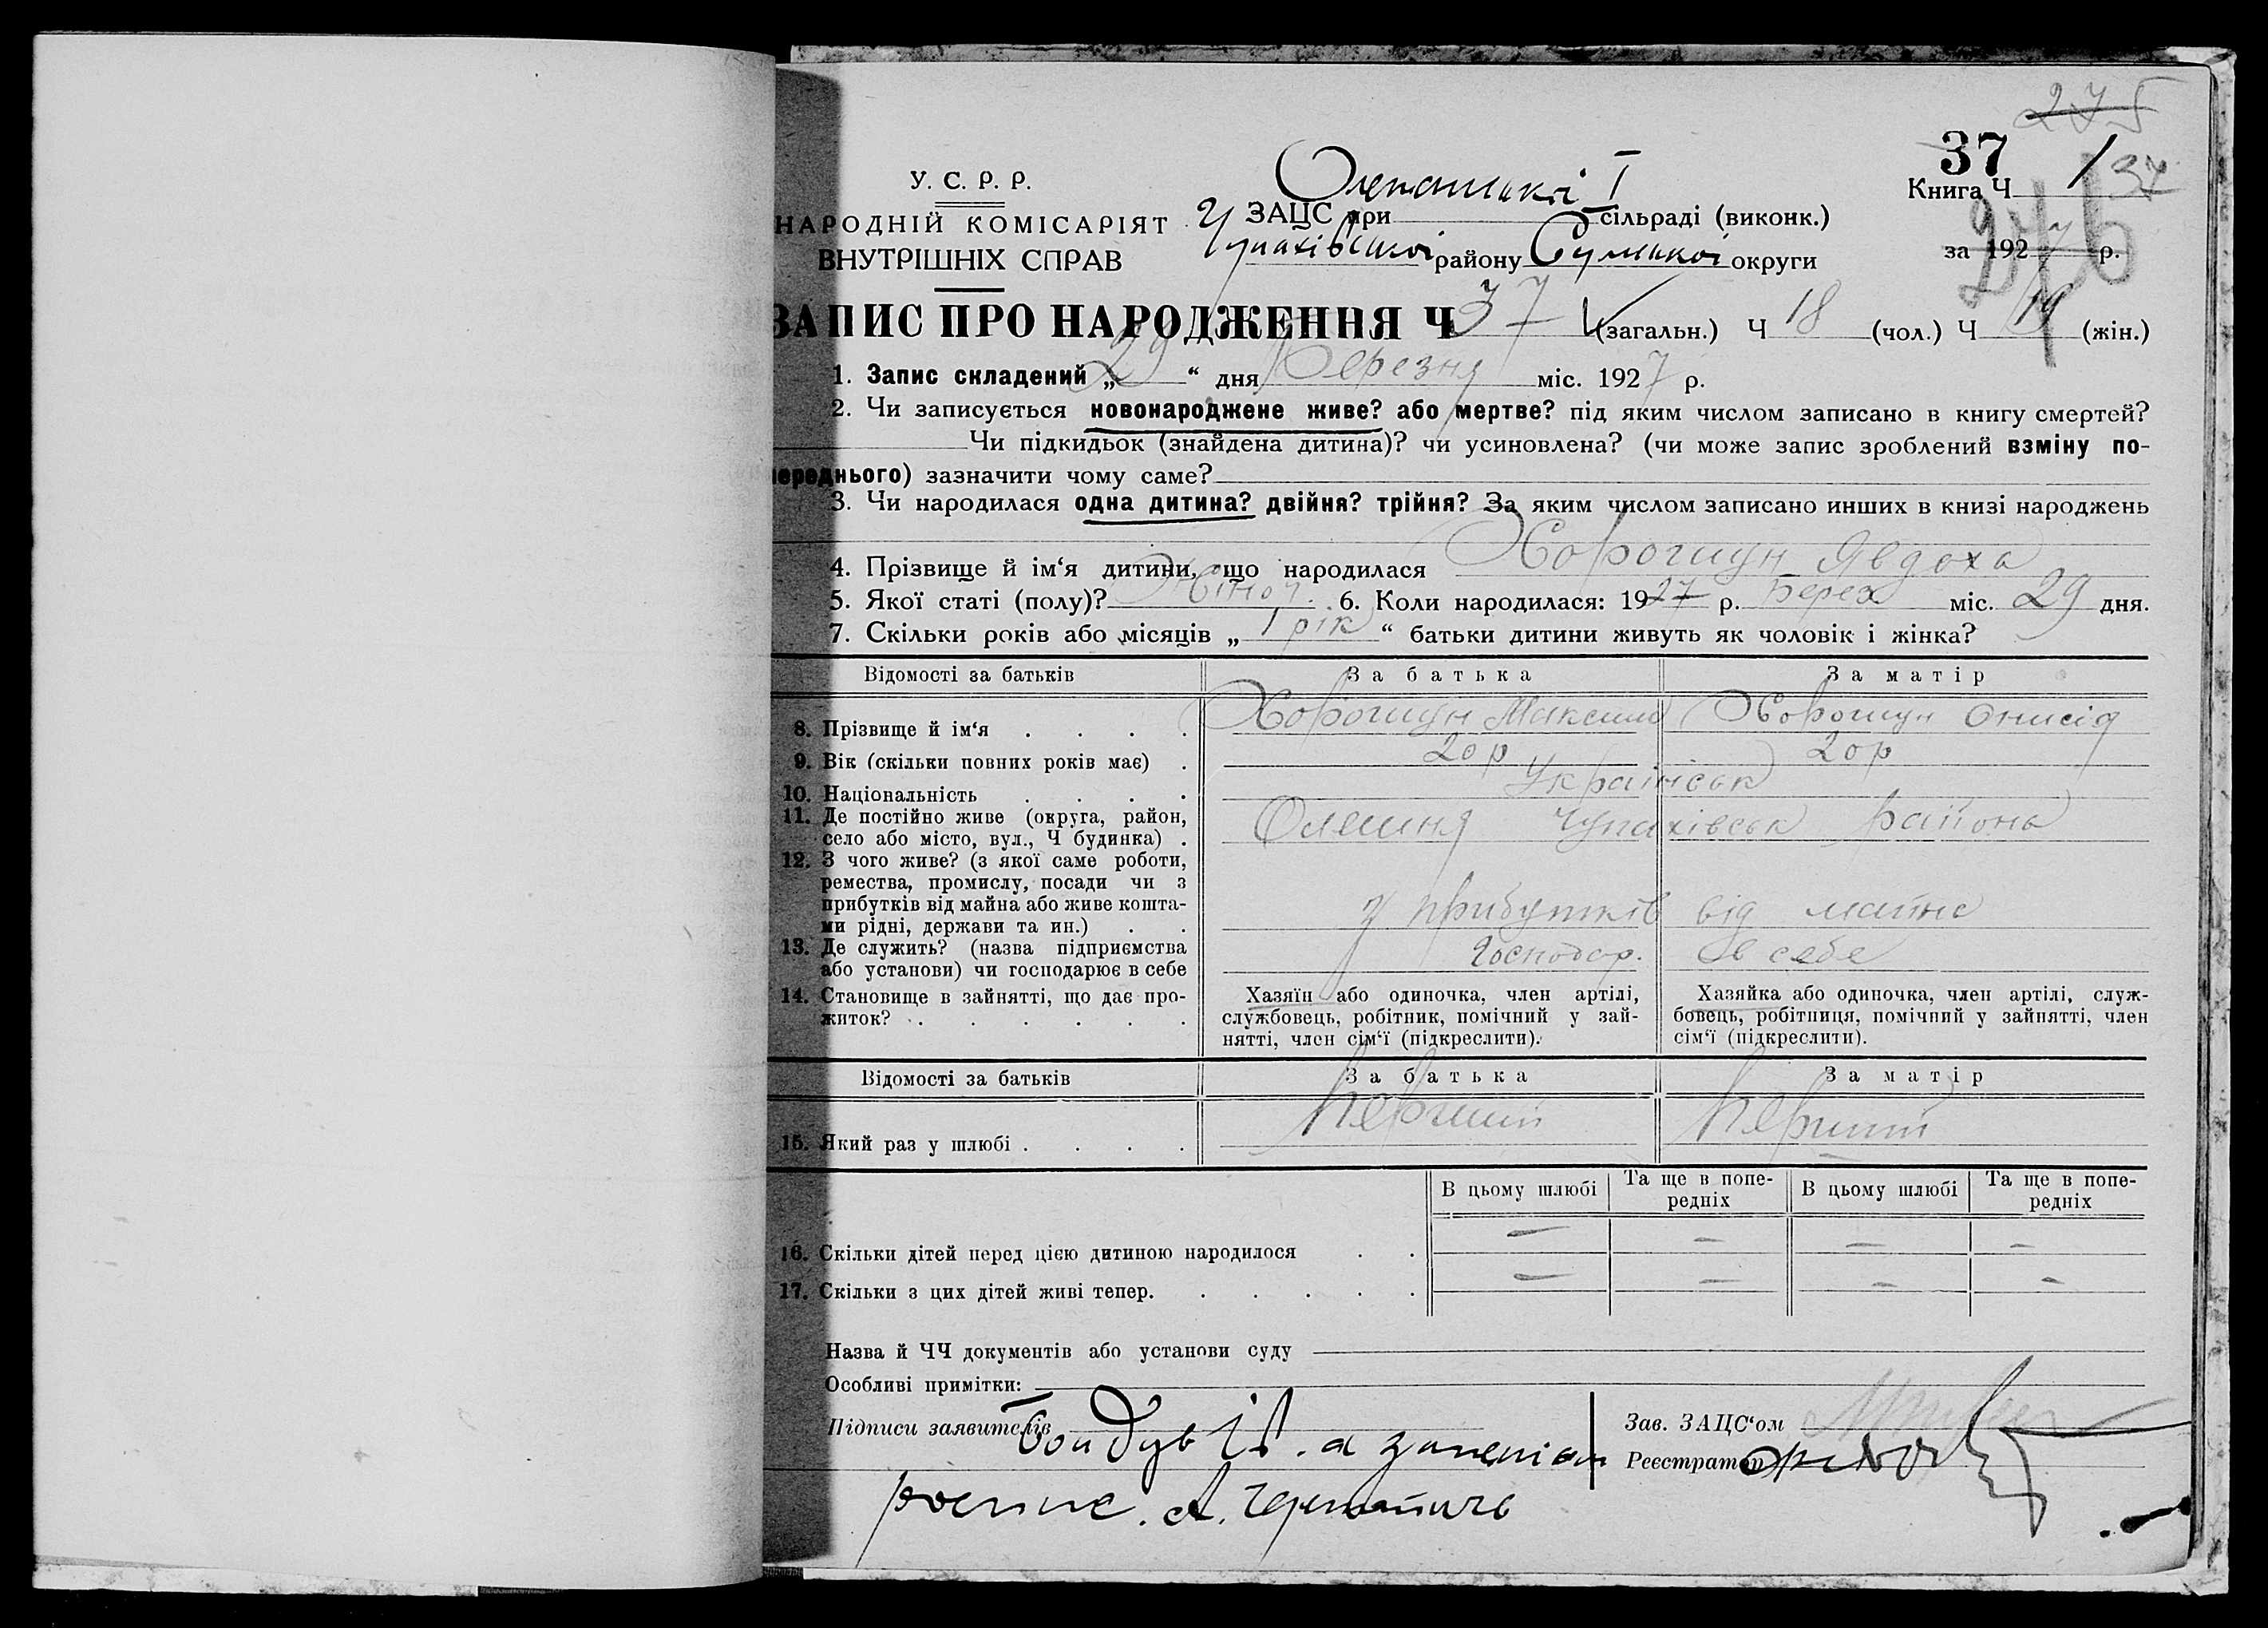 275
37
У. С. Р. Р.
Книга Ч 1 37
НАРОДНІЙ КОМІСАРІЯТ
ВНУТРІШНІХ СПРАВ
ЗАЦС при І сільраді (виконк.)
276
Чупахівської району Сумської округи
за 1927 р.
ЗАПИС ПРО НАРОДЖЕННЯ Ч 37 (загальн.) Ч 18 (чол.) Ч 19 (жін.)
1. Запис складений „29“ дня Березня міс. 1927 р.
2. Чи записується новонароджене живе? або мертве? під яким числом записано в книгу смертей?
Чи підкидьок (знайдена дитина)? чи усиновлена? (чи може запис зроблений взміну по-
переднього) зазначити чому саме?
3. Чи народилася одна дитина? двійня? трійня? За яким числом записано инших в книзі народжень
4. Прізвище й ім‘я дитини, що народилася Хорошун Явдоха
5. Якої статі (полу)? Жіноч. 6. Коли народилася: 1927 р. Берез міс. 29 дня.
7. Скільки років або місяців „1 рік“ батьки дитини живуть як чоловік і жінка?
Відомості за батьків За батька За матір
8. Прізвище й ім‘я . . . . Хорошун Максим Хорошун Онисія
9. Вік (скільки повних років має) . 20 р 20 р
10. Національність . . . . Українськ
11. Де постійно живе (округа, район,
село або місто, вул., Ч будинка) . Олешня Чупахівськ района
12. З чого живе? (з якої саме роботи,
ремества, промислу, посади чи з
прибутків від майна або живе кошта-
ми рідні, держави та ин.) . . з прибутків від майна
13. Де служить? (назва підприємства
або установи) чи господарює в себе Господар. в себе
14. Становище в зайнятті, що дає про-
житок? . . . . . .
Хазяїн або одиночка, член артілі,
службовець, робітник, помічний у зай-
нятті, член сім‘ї (підкреслити).
Хазяйка або одиночка, член артілі, служ-
бовець, робітниця, помічний у зайнятті, член
сім‘ї (підкреслити).
Відомості за батьків За батька За матір
15. Який раз у шлюбі . . . . Перший Перший
В цьому шлюбі Та ще в попе-
редніх В цьому шлюбі Та ще в попе-
редніх
16. Скільки дітей перед цією дитиною народилося . . — — — —
17. Скільки з цих дітей живі тепер. . . . . . . — — — —
Назва й ЧЧ документів або установи суду
Особливі примітки:
Підписи заявителів
Зав. ЗАЦС‘ом
Реєстратор